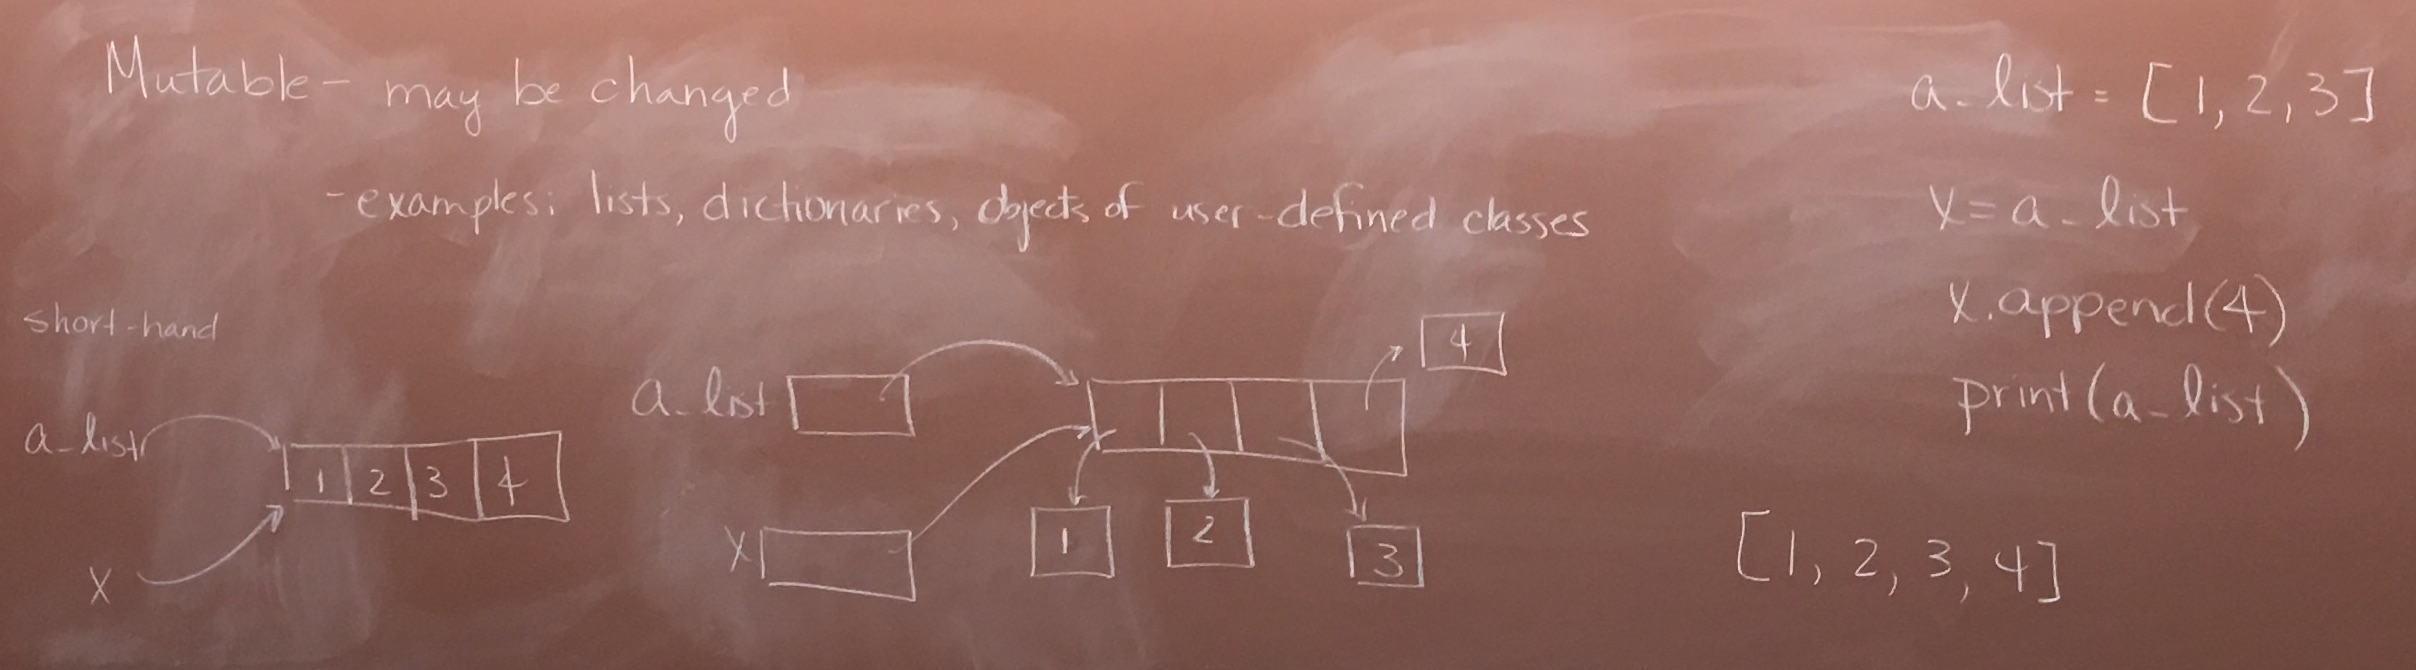 Mutable - may be changed
- examples: lists, dictionaries, objects of user-defined classes
short-hand
a_list
1 2 3 4
x
a_list
4
x
1 2 3
a_list = [1, 2, 3]
x = a_list
x.append(4)
print(a_list)
[1, 2, 3, 4]